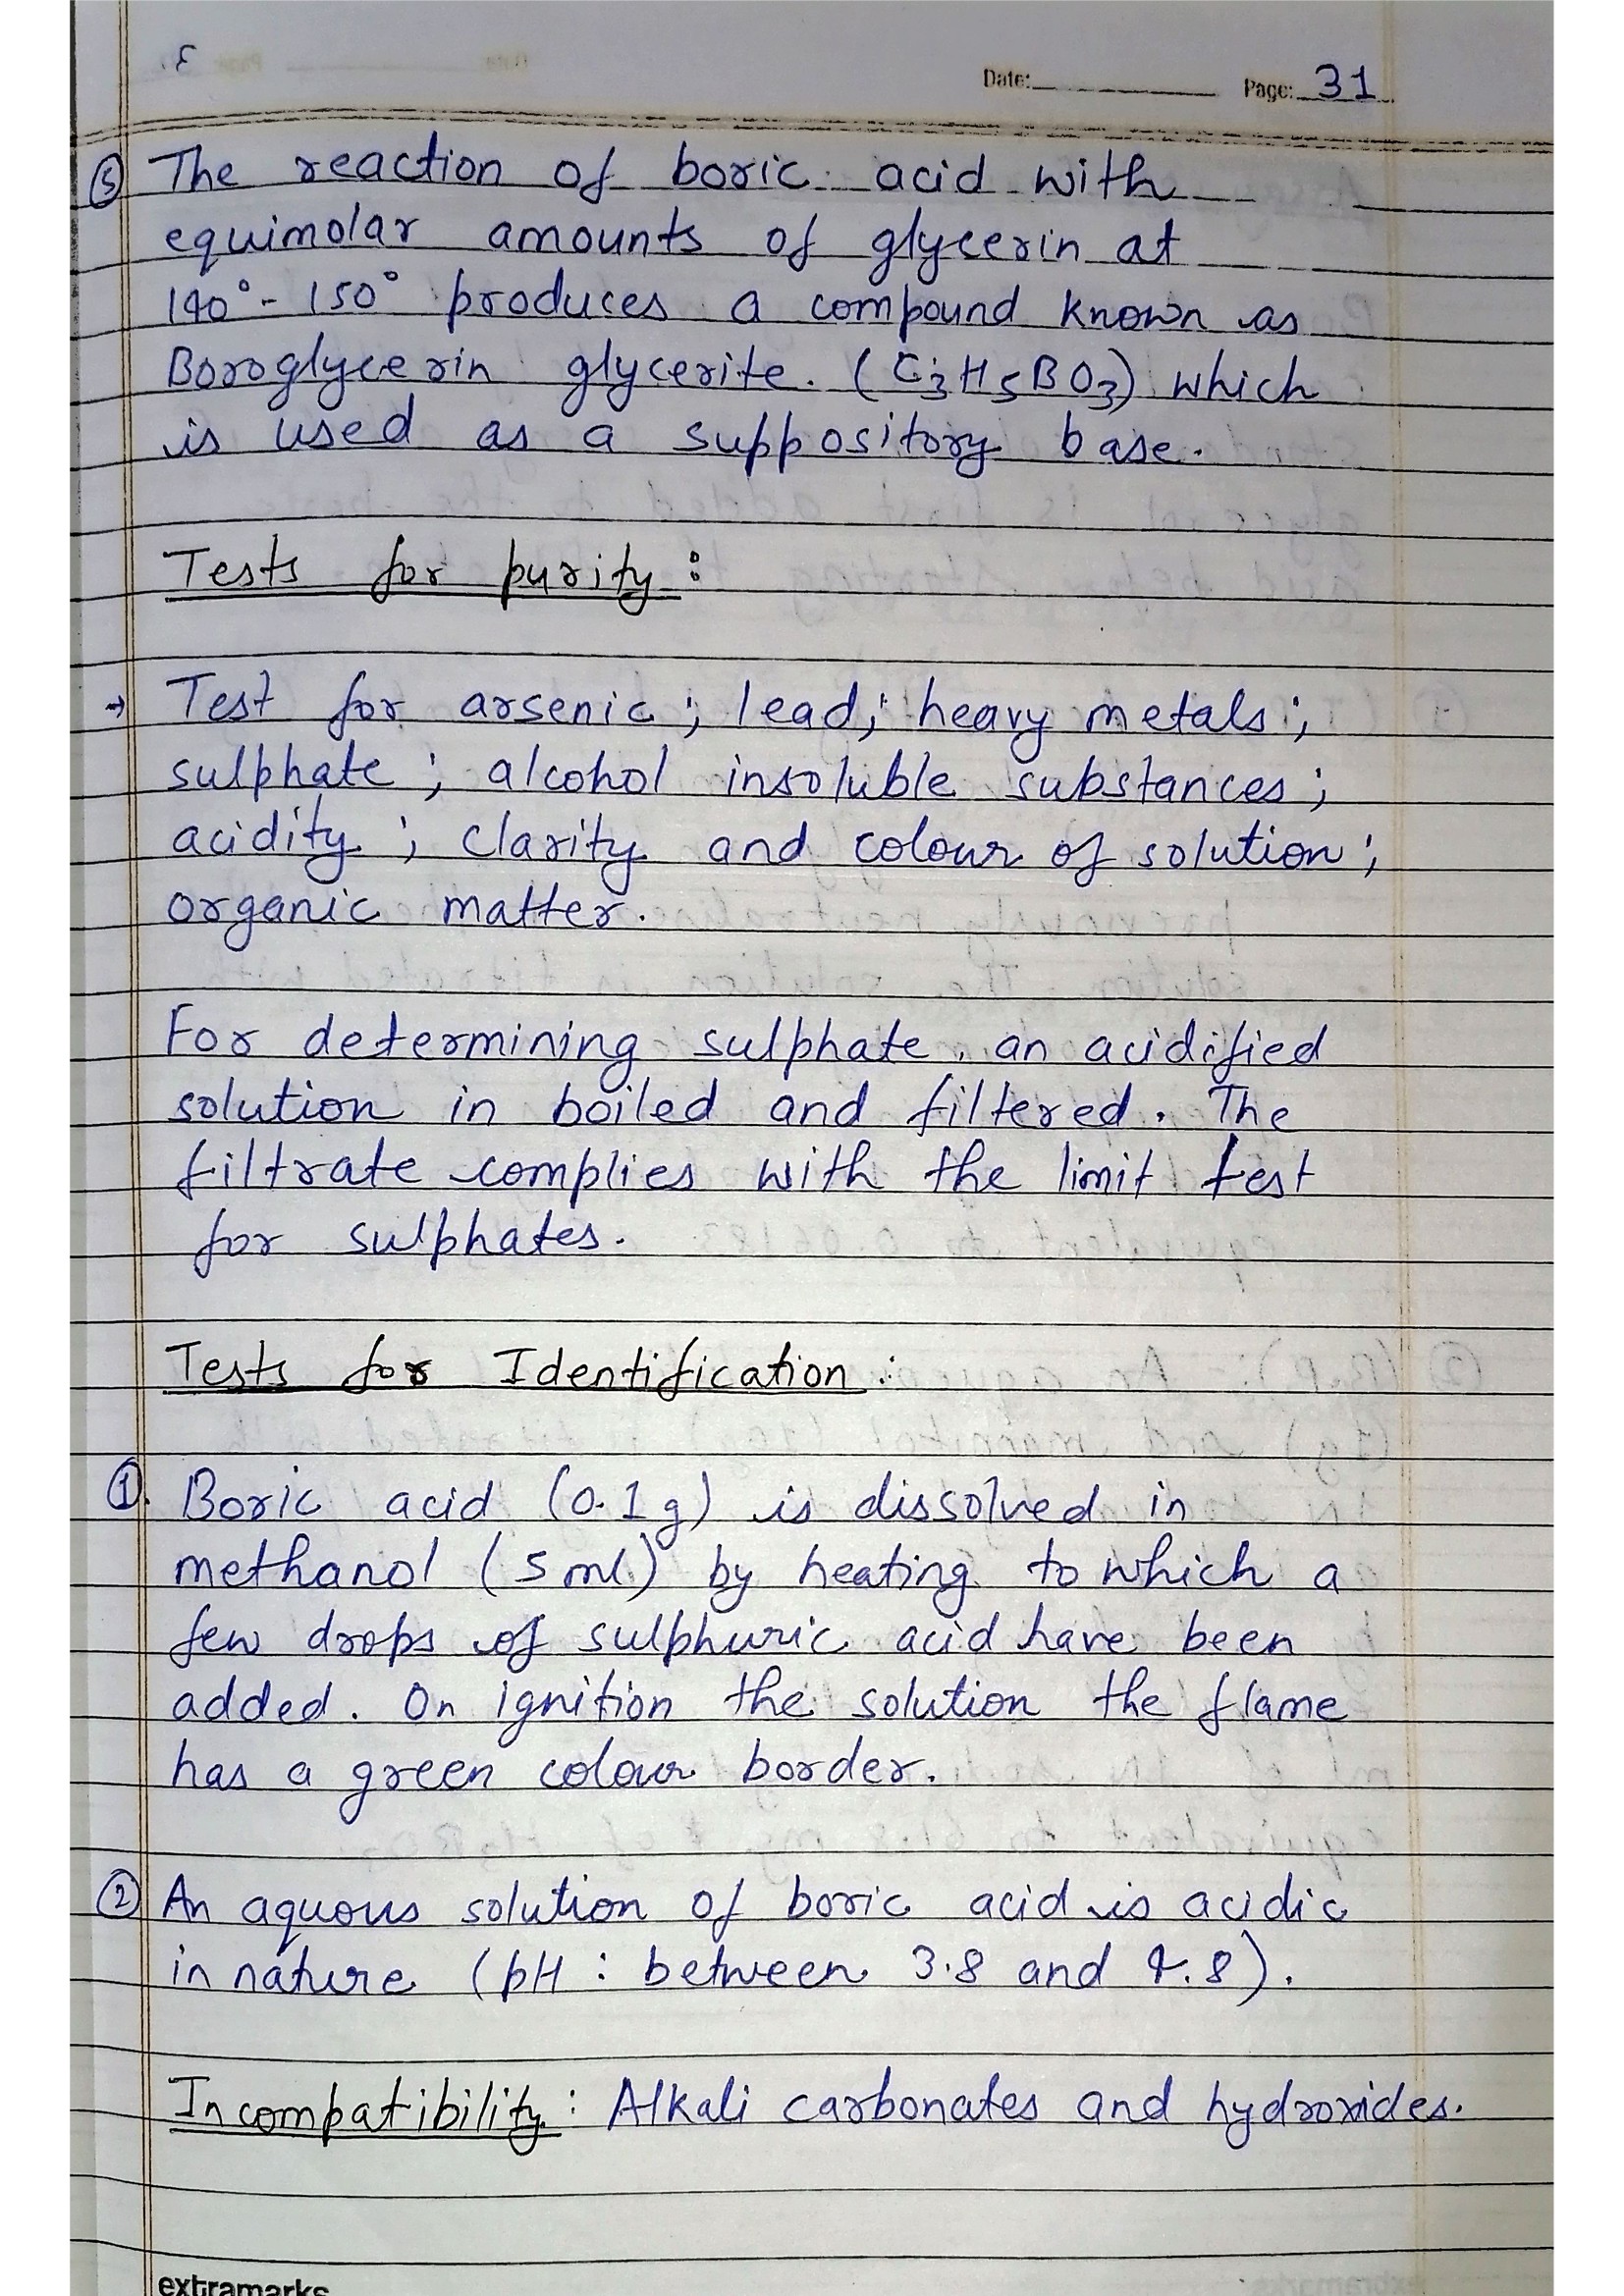 Date: Page: 31
⑤ The reaction of boric acid with
equimolar amounts of glycerin at
140°-150° produces a compound known as
Boroglycerin glycerite. (C3H5BO3) which
is used as a suppository base.
Tests for purity:
→ Test for arsenic; lead; heavy metals;
sulphate; alcohol insoluble substances;
acidity; clarity and colour of solution;
organic matter.
For determining sulphate, an acidified
solution in boiled and filtered. The
filtrate complies with the limit test
for sulphates.
Tests for Identification:
①. Boric acid (0.1g) is dissolved in
methanol (5 ml) by heating to which a
few drops of sulphuric acid have been
added. On ignition the solution the flame
has a green colour border.
② An aquous solution of boric acid is acidic
in nature (pH: between 3.8 and 4.8).
Incompatibility: Alkali carbonates and hydroxides.
extramarks